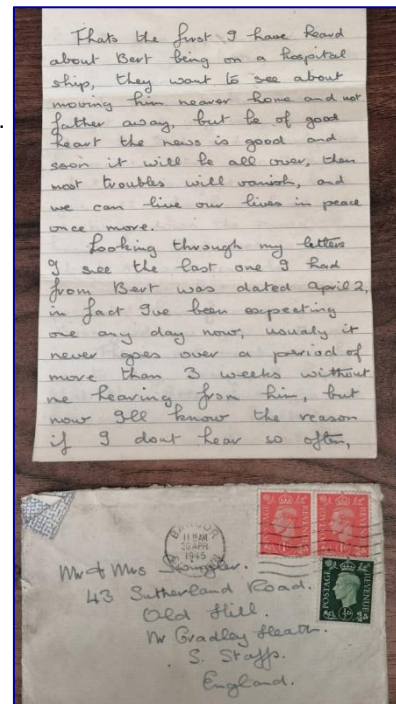 Thats the first I have heard
about Bert being on a hospital
ship, they want to see about
moving him nearer home and not
father away, but be of good
heart the news is good and
soon it will be all over, then
most troubles will vanish, and
we can live our lives in peace
once more.
Looking through my letters
I see the last one I had
from Bert was dated April 2,
in fact Ive been expecting
one any day now, usualy it
never goes over a period of
more than 3 weeks without
me hearing from him, but
now Ill know the reason
if I dont hear so often,
BANGOR
11 15 AM
20 APR
1945
POSTAGE REVENUE
POSTAGE REVENUE
POSTAGE REVENUE
Mr & Mrs
43 Sutherland Road.
Old Hill.
Nr Cradley Heath.
S. Staffs.
England.